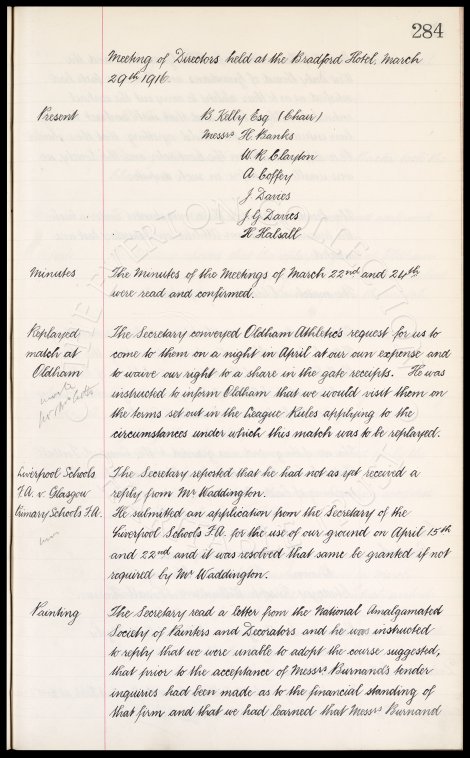 284
Meeting of Directors held at the Bradford Hotel, March
29th 1916.
Present
B. Kelly Esq (Chair)
Messrs H. Banks
W. R. Clayton
A. Coffey
J Davies
J. G. Davies
H Halsall
Minutes
The Minutes of the Meetings of March 22nd and 24th
were read and confirmed.
Replayed
match at
Oldham
The Secretary conveyed Oldham Athletic's request for us to
come to them on a night in April at our own expense and
to waive our right to a share in the gate receipts. He was
instructed to inform Oldham that we would visit them on
the terms set out in the League Rules applying to the
circumstances under which this match was to be replayed.
Liverpool Schools
F.A. v. Glasgow
Primary Schools F.A.
The Secretary reported that he had not as yet received a
reply from Mr Waddington.
He submitted an application from the Secretary of the
Liverpool Schools F.A. for the use of our ground on April 15th
and 22nd and it was resolved that same be granted if not
required by Mr Waddington.
Painting
The Secretary read a letter from the National Amalgamated
Society of Painters and Decorators and he was instructed
to reply that we were unable to adopt the course suggested,
that prior to the acceptance of Messrs Burnands tender
inquiries had been made as to the financial standing of
that firm and that we had learned that Messrs Burnand
THE EVERTON COLLECTION